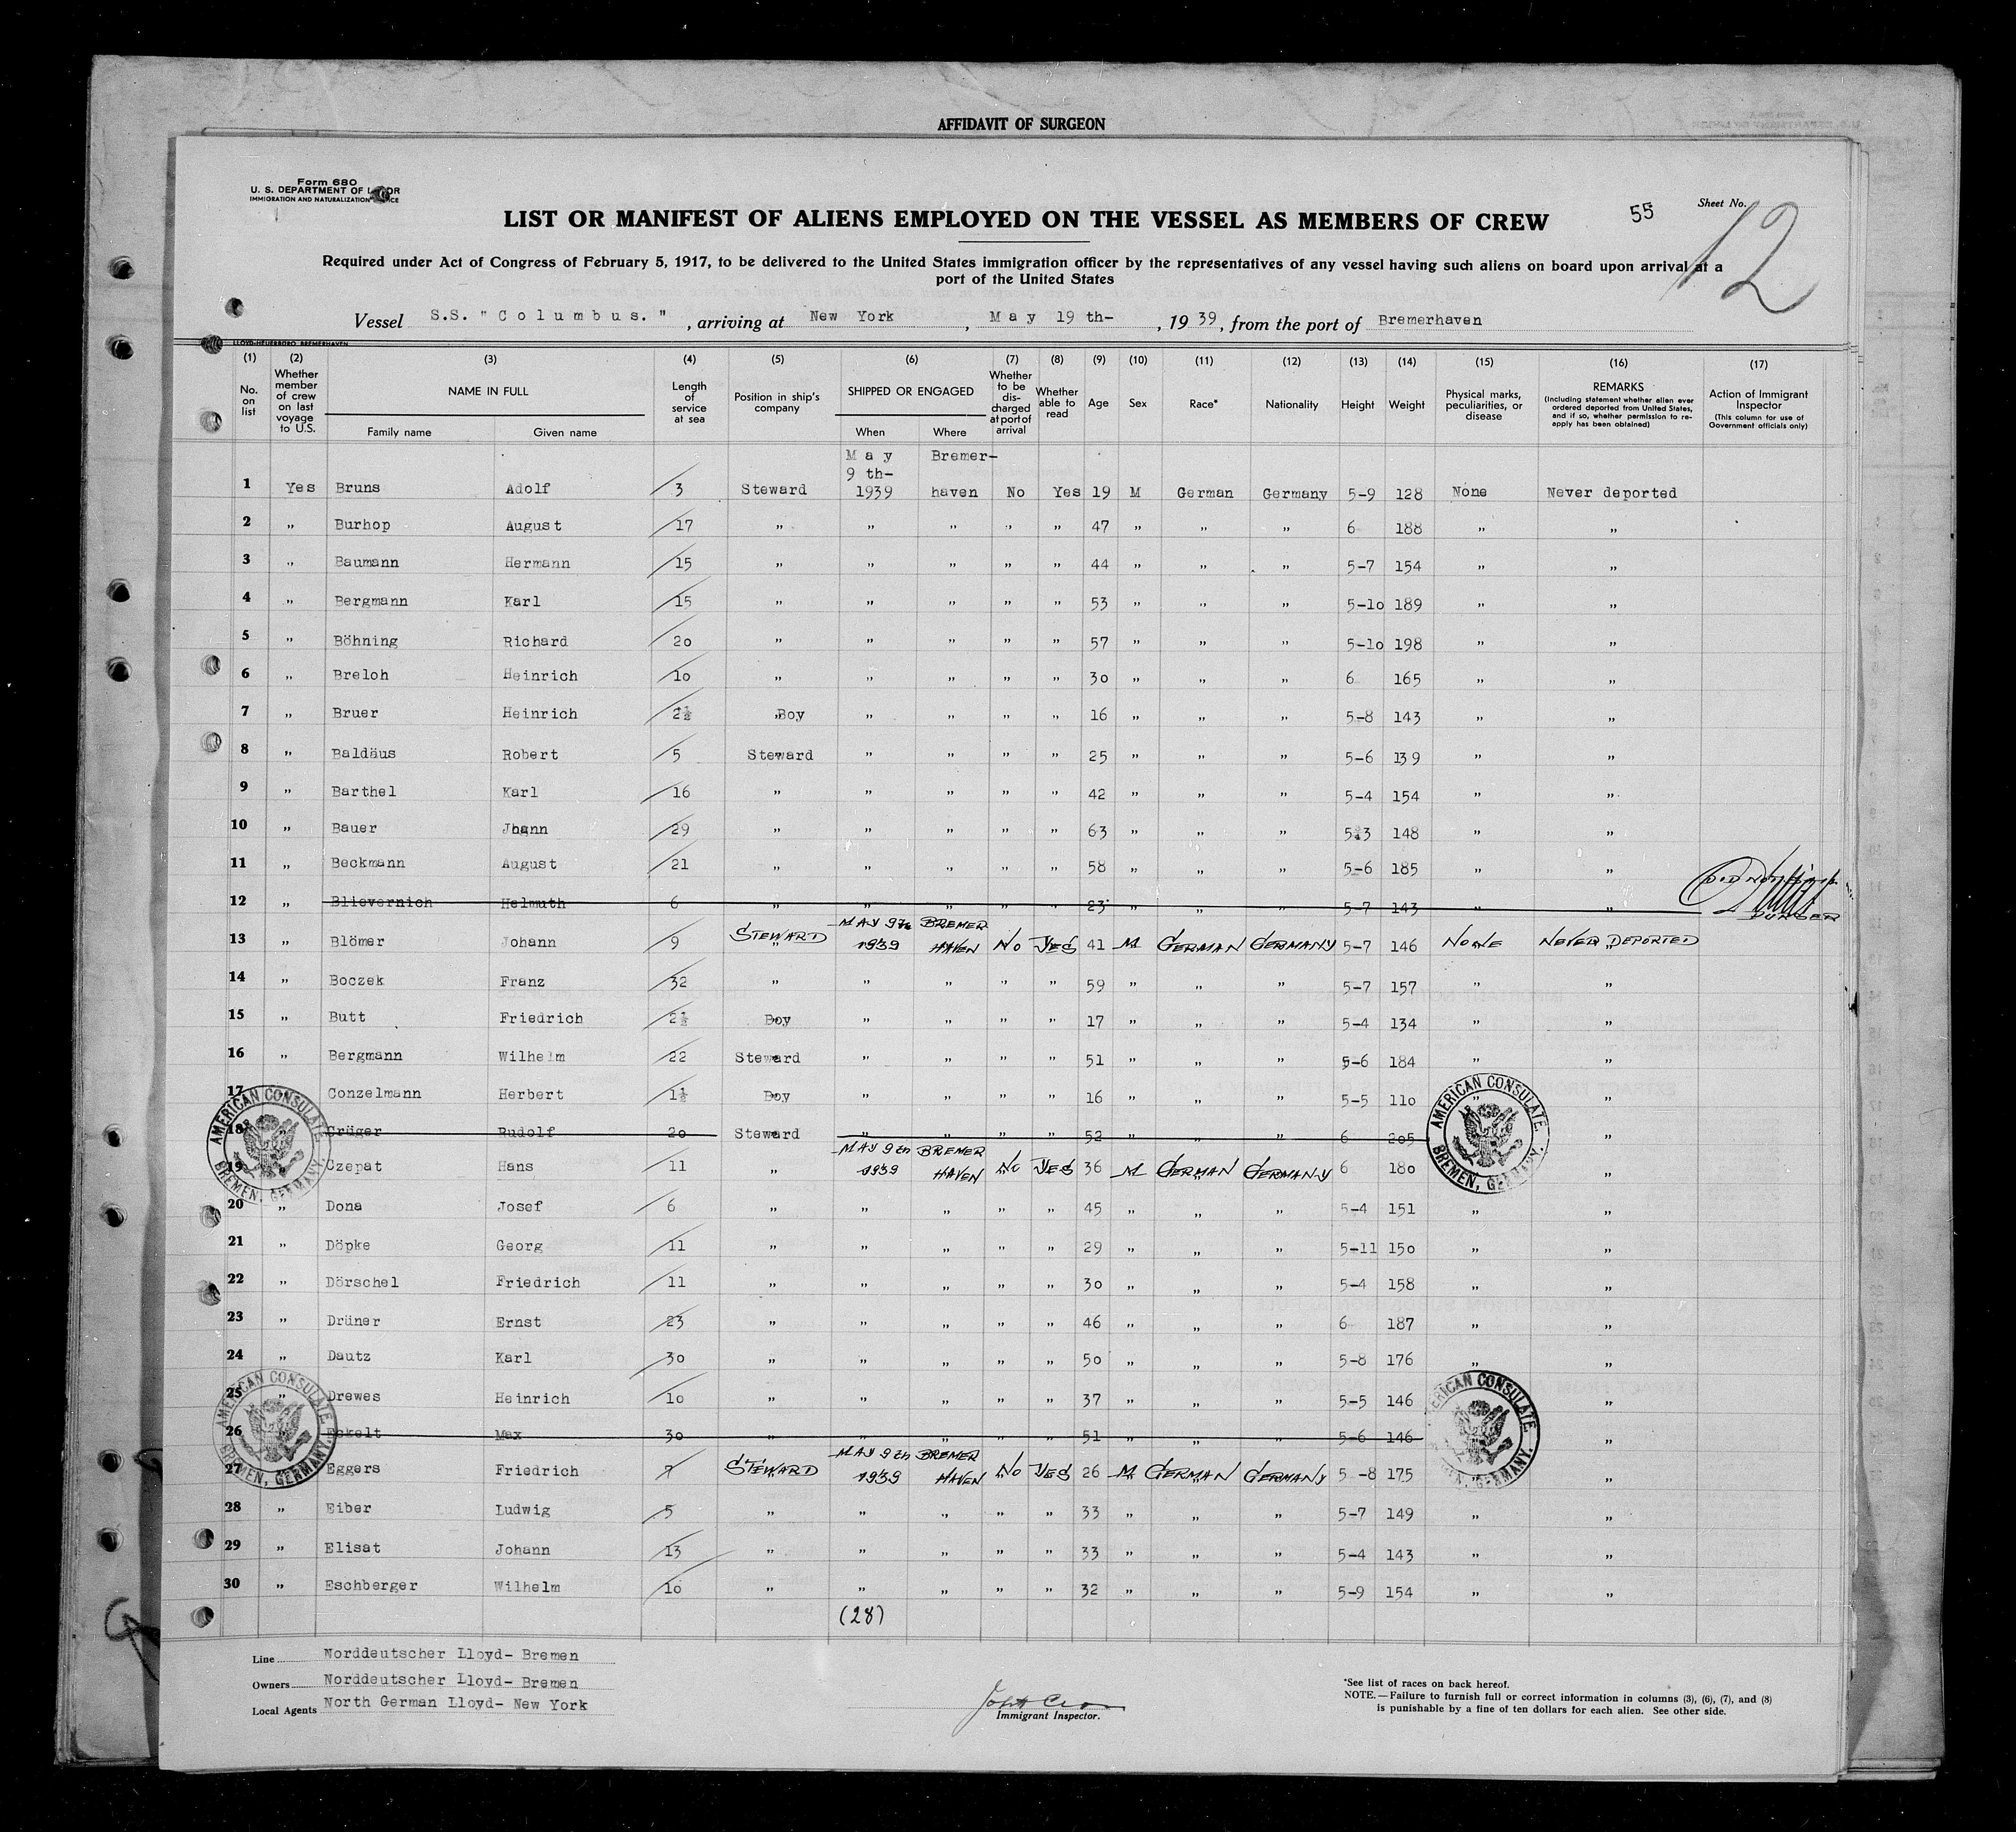 AFFIDAVIT OF SURGEON
Form 680
U. S. DEPARTMENT OF
IMMIGRATION AND NATURALIZATION
LIST OR MANIFEST OF ALIENS EMPLOYED ON THE VESSEL AS MEMBERS OF CREW
55 Sheet No. 12
Required under Act of Congress of February 5, 1917, to be delivered to the United States immigration officer by the representatives of any vessel having such aliens on board upon arrival at a
port of the United States
Vessel S.S. "Columbus.", arriving at New York, May 19 th-, 1939, from the port of Bremerhaven
(1) (2) (3) (4) (5) (6) (7) (8) (9) (10) (11) (12) (13) (14) (15) (16) (17)
No. on list Whether member of crew on last voyage to U.S. NAME IN FULL Family name Given name Length of service at sea Position in ship's company SHIPPED OR ENGAGED When Where Whether to be discharged at port of arrival Whether able to read Age Sex Race* Nationality Height Weight Physical marks, peculiarities, or disease REMARKS (Including statement whether alien ever ordered deported from United States, and if so, whether permission to reapply has been obtained) Action of Immigrant Inspector (This column for use of Government officials only)
1 Yes Bruns Adolf 3 Steward May 9 th- 1939 Bremer-haven No Yes 19 M German Germany 5-9 128 None Never deported
2 " Burhop August 17 " " " " " 47 " " " 6 188 " "
3 " Baumann Hermann 15 " " " " " 44 " " " 5-7 154 " "
4 " Bergmann Karl 15 " " " " " 53 " " " 5-10 189 " "
5 " Böhning Richard 20 " " " " " 57 " " " 5-10 198 " "
6 " Breloh Heinrich 10 " " " " " 30 " " " 6 165 " "
7 " Bruer Heinrich 2½ Boy " " " " 16 " " " 5-8 143 " "
8 " Baldäus Robert 5 Steward " " " " 25 " " " 5-6 139 " "
9 " Barthel Karl 16 " " " " " 42 " " " 5-4 154 " "
10 " Bauer Johann 29 " " " " " 63 " " " 5-3 148 " "
11 " Beckmann August 21 " " " " " 58 " " " 5-6 185 " "
12 " Blievernich Helmuth 6 " " " " " 23 " " " 5-7 143 " "
13 " Blömer Johann 9 STEWARD MAY 9th 1939 BREMER HAVEN NO YES 41 M GERMAN GERMANY 5-7 146 NONE NEVER DEPORTED
14 " Boczek Franz 32 " " " " " 59 " " " 5-7 157 " "
15 " Butt Friedrich 2½ Boy " " " " 17 " " " 5-4 134 " "
16 " Bergmann Wilhelm 22 Steward " " " " 51 " " " 5-6 184 " "
17 " Conzelmann Herbert 1½ Boy " " " " 16 " " " 5-5 110 " "
18 " Crüger Rudolf 20 Steward " " " " 52 " " " 6 205 "
19 Czepat Hans 11 " MAY 9th 1939 BREMER HAVEN NO YES 36 M GERMAN GERMANY 6 180 "
20 " Dona Josef 6 " " " " " 45 " " " 5-4 151 " "
21 " Döpke Georg 11 " " " " " 29 " " " 5-11 150 " "
22 " Dörschel Friedrich 11 " " " " " 30 " " " 5-4 158 " "
23 " Drüner Ernst 23 " " " " " 46 " " " 6 187 " "
24 " Dautz Karl 30 " " " " " 50 " " " 5-8 176 " "
25 " Drewes Heinrich 10 " " " " " 37 " " " 5-5 146 "
26 Eckelt Max 30 " " " " " 51 " " " 5-6 146 "
27 Eggers Friedrich 7 STEWARD MAY 9th 1939 BREMER HAVEN NO YES 26 M GERMAN GERMANY 5-8 175 "
28 " Eiber Ludwig 5 " " " " " 33 " " " 5-7 149 " "
29 " Elisat Johann 13 " " " " " 33 " " " 5-4 143 " "
30 " Eschberger Wilhelm 10 " " " " " 32 " " " 5-9 154 " "
(28)
AMERICAN CONSULATE. BREMEN, GERMANY.
AMERICAN CONSULATE. BREMEN, GERMANY.
AMERICAN CONSULATE. BREMEN, GERMANY.
AMERICAN CONSULATE. BREMEN, GERMANY.
Line Norddeutscher Lloyd- Bremen
Owners Norddeutscher Lloyd- Bremen
Local Agents North German Lloyd- New York
Immigrant Inspector.
*See list of races on back hereof.
NOTE.—Failure to furnish full or correct information in columns (3), (6), (7), and (8)
is punishable by a fine of ten dollars for each alien. See other side.